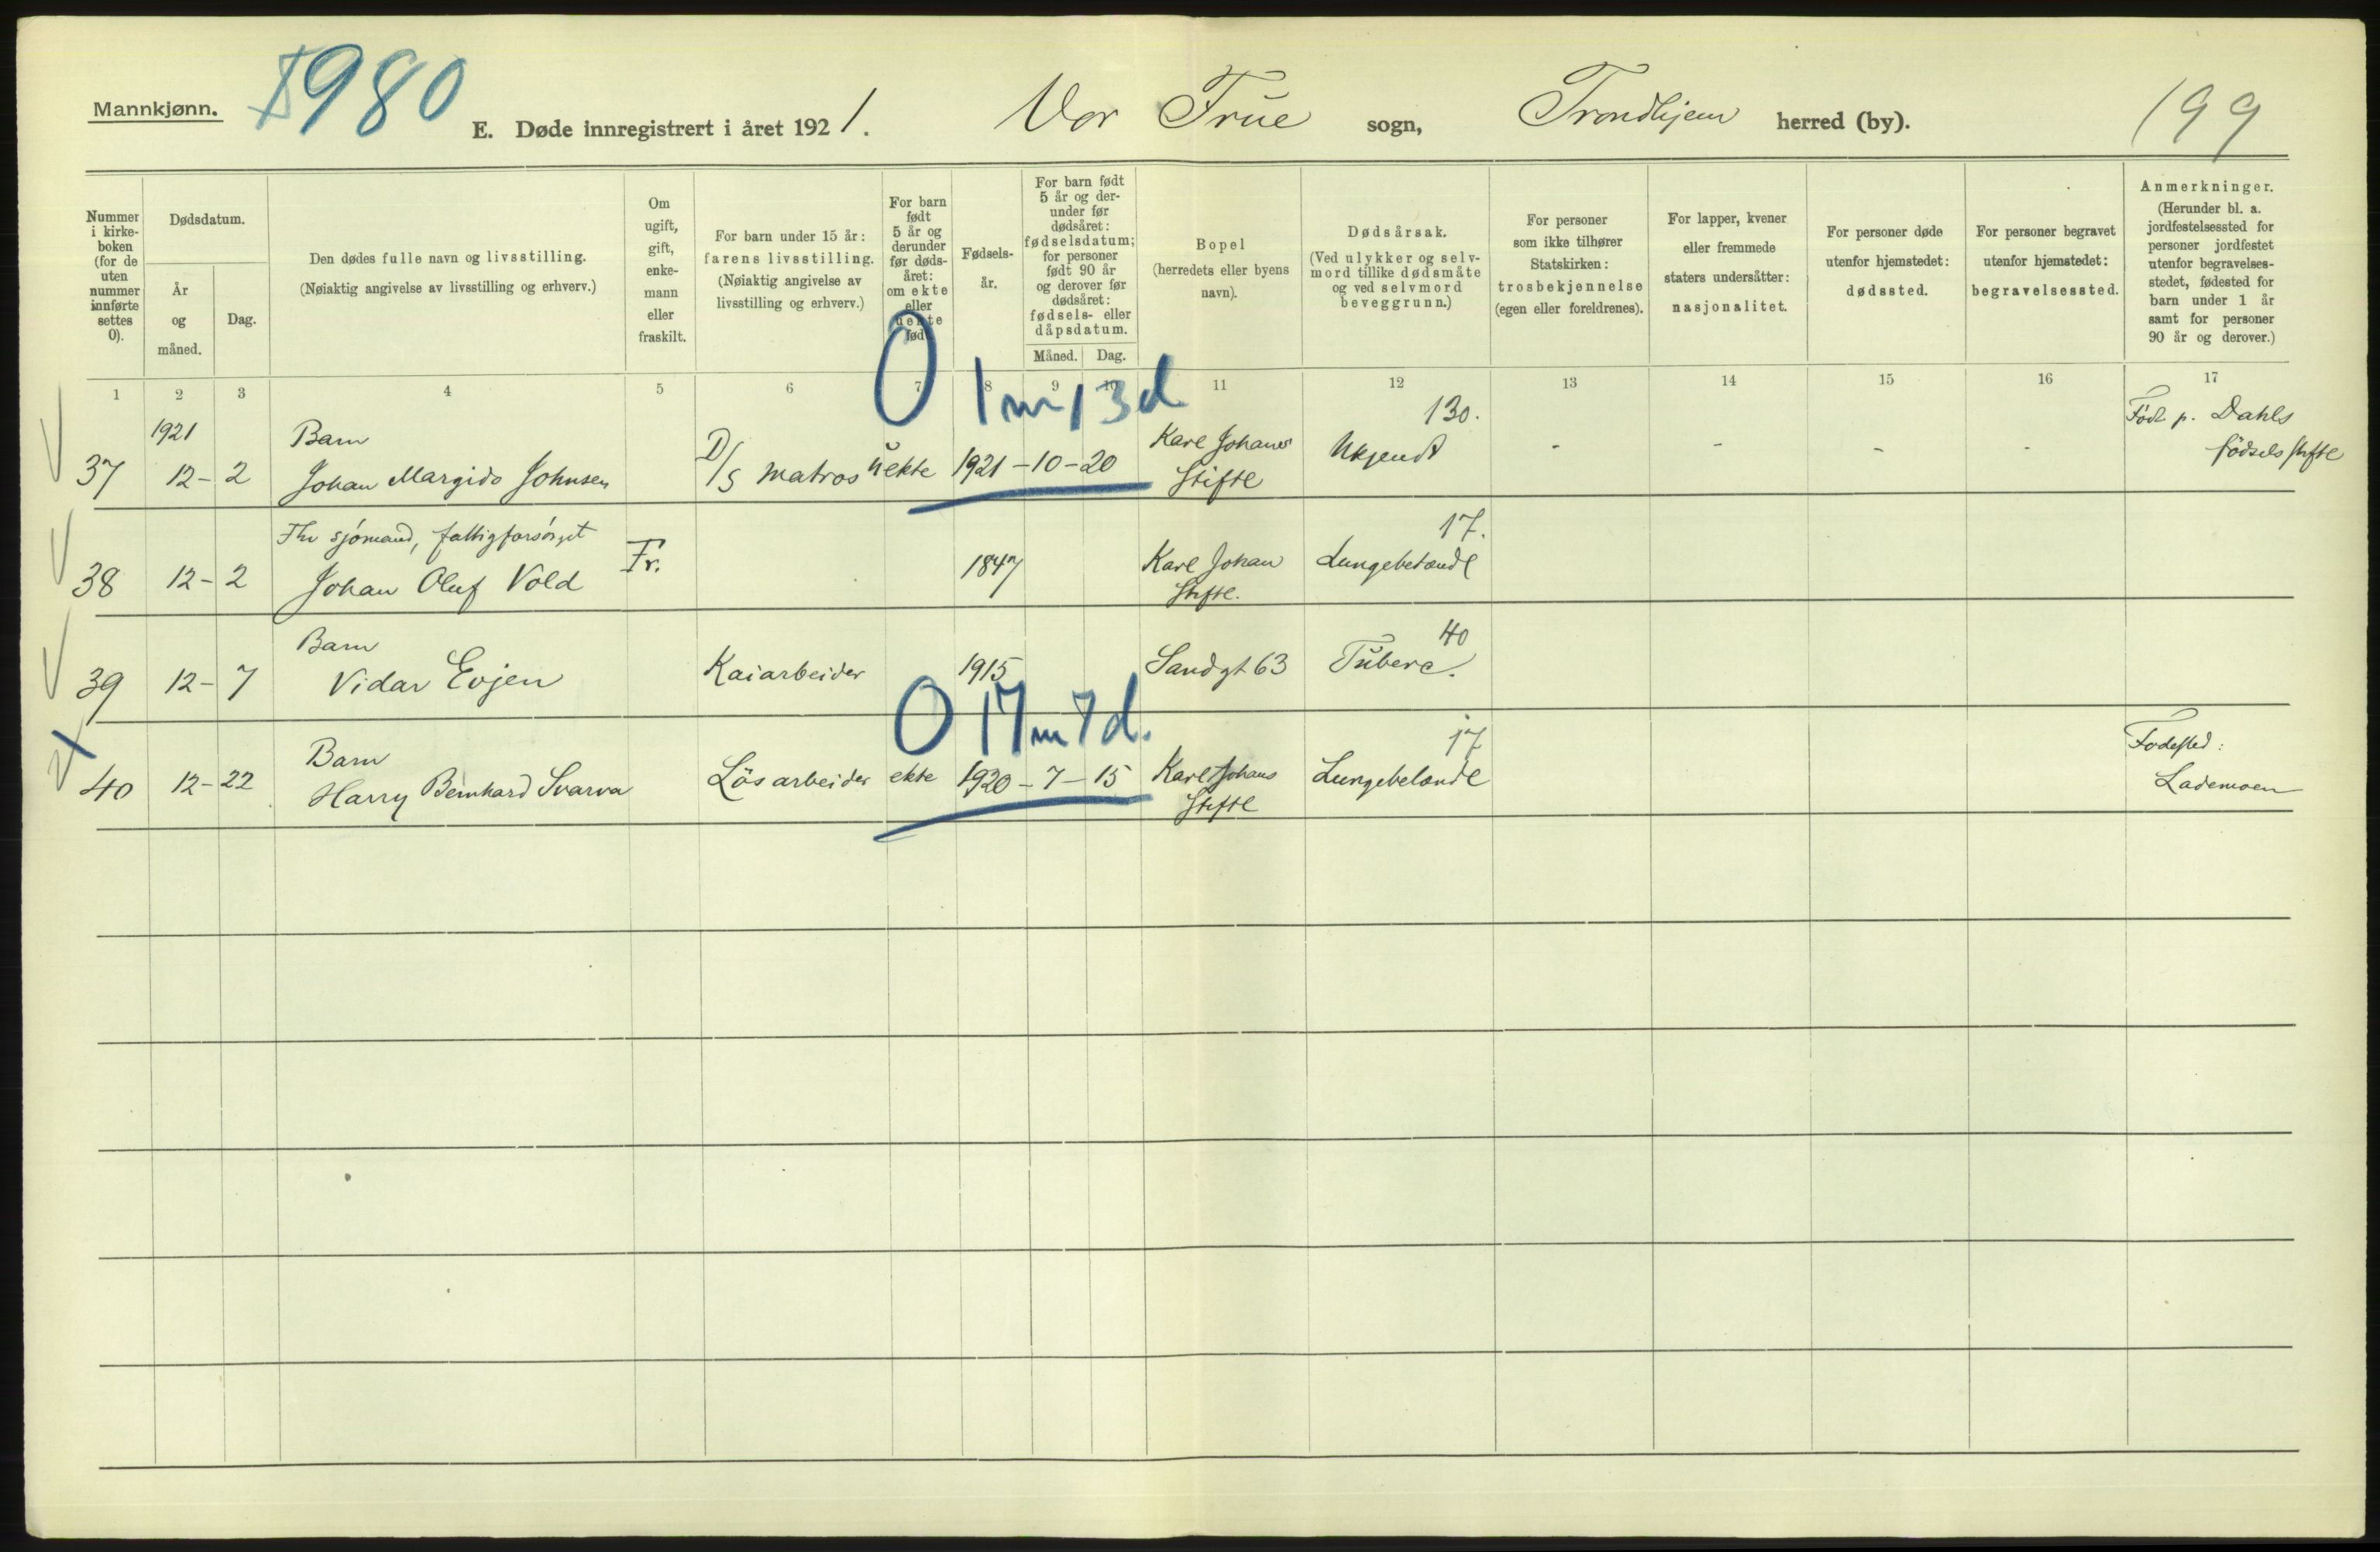 Mannkjønn.
1980
E. Døde innregistrert i året 1921. Vor Frue sogn, Trondhjem herred (by).
199
Nummer i kirkeboken (for de uten nummer innførte settes 0).
Dødsdatum.
År og måned.
Dag.
Den dødes fulle navn og livsstilling.
(Nøiaktig angivelse av livsstilling og erhverv.)
Om ugift, gift, enkemann eller fraskilt.
For barn under 15 år: farens livsstilling.
(Nøiaktig angivelse av livsstilling og erhverv.)
For barn født 5 år og derunder før dødsåret: om ekte eller uekte født
Fødselsår.
For barn født 5 år og derunder før dødsåret: fødselsdatum; for personer født 90 år og derover før dødsåret: fødsels- eller dåpsdatum.
Måned. Dag.
Bopel
(herredets eller byens navn).
Dødsårsak.
(Ved ulykker og selvmord tillike dødsmåte og ved selvmord beveggrunn.)
For personer som ikke tilhører Statskirken: trosbekjennelse (egen eller foreldrenes).
For lapper, kvener eller fremmede staters undersåtter: nasjonalitet.
For personer døde utenfor hjemstedet: dødssted.
For personer begravet utenfor hjemstedet: begravelsessted.
Anmerkninger.
(Herunder bl. a. jordfestelsessted for personer jordfestet utenfor begravelsesstedet, fødested for barn under 1 år samt for personer 90 år og derover.)
1 2 3 4 5 6 7 8 9 10 11 12 13 14 15 16 17
0 1 m 13 d
1921 Barn 130. Født p. Dahls
37 12-2 Johan Margido Johnsen D/S Matros uekte 1921-10-20 Karl Johans Stifte Ukjendt - - - - fødsels stifte
Fhv sjømand, fattigforsørget 17.
38 12-2 Johan Oluf Vold Fr. 1847 Karl Johan Stifte. Lungebetændl
Barn 40
39 12-7 Vidar Evjen Kaiarbeider 1915 Sandgt 63 Tuberc.
0 17 m 7 d.
Barn 17 Fødested:
40 12-22 Harry Bernhard Svarva Løsarbeider ekte 1920-7-15 Karl Johans Stifte Lungebetændl Lademoen